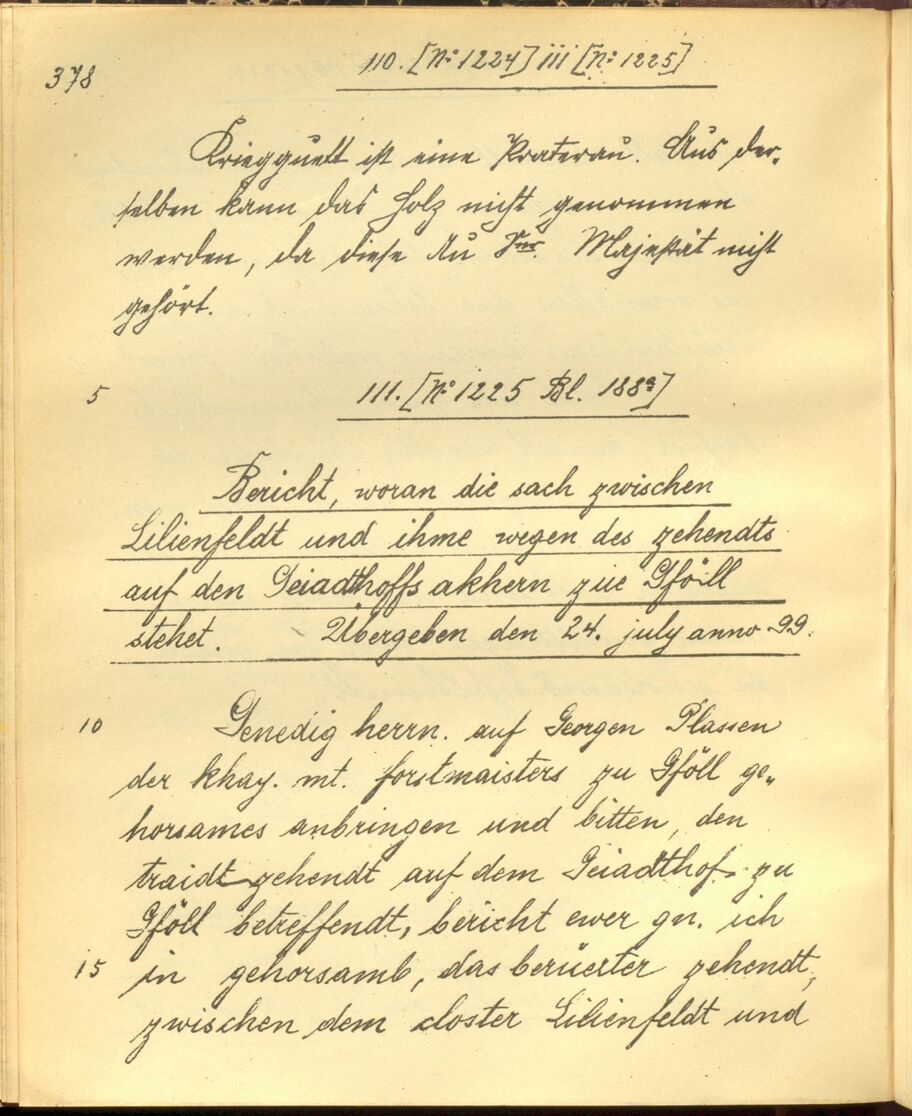 378
110. [No 1224] iii [No 1225]
Kriegguett ist eine Praterau. Aus der-
selben kann das Holz nicht genommen
werden, da diese Au Snr. Majestät nicht
gehört.
5
111. [No 1225 Bl. 188a]
Bericht, woran die sach zwischen
Lilienfeldt und ihme wegen des zehendts
auf den Geiadthoffs akhern zue Gföll
stehet. Übergeben den 24. july anno 99.
10 Genedig herrn. auf Georgen Plassen
der khay. mt. forstmaisters zu Gföll ge-
horsames anbringen und bitten, den
traidt zehendt auf dem Geiadthof zu
Gföll betreffendt, bericht ewer gn. ich
15 in gehorsamb, das berüerter zehendt,
zwischen dem closter Lilienfeldt und